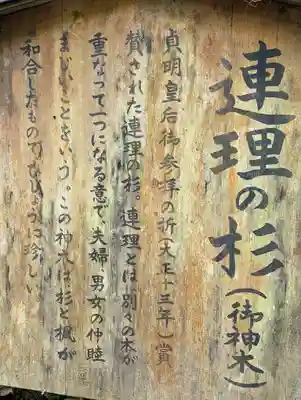 連理の杉(御神木)
貞明皇后御参拝の折(大正十三年)賞
賛された連理の杉。連理とは、別々の木が
重なって一つになる意で、夫婦、男女の仲睦
まじいことをいう。この神木は、杉と楓が
和合したものでひじょうに珍しい。